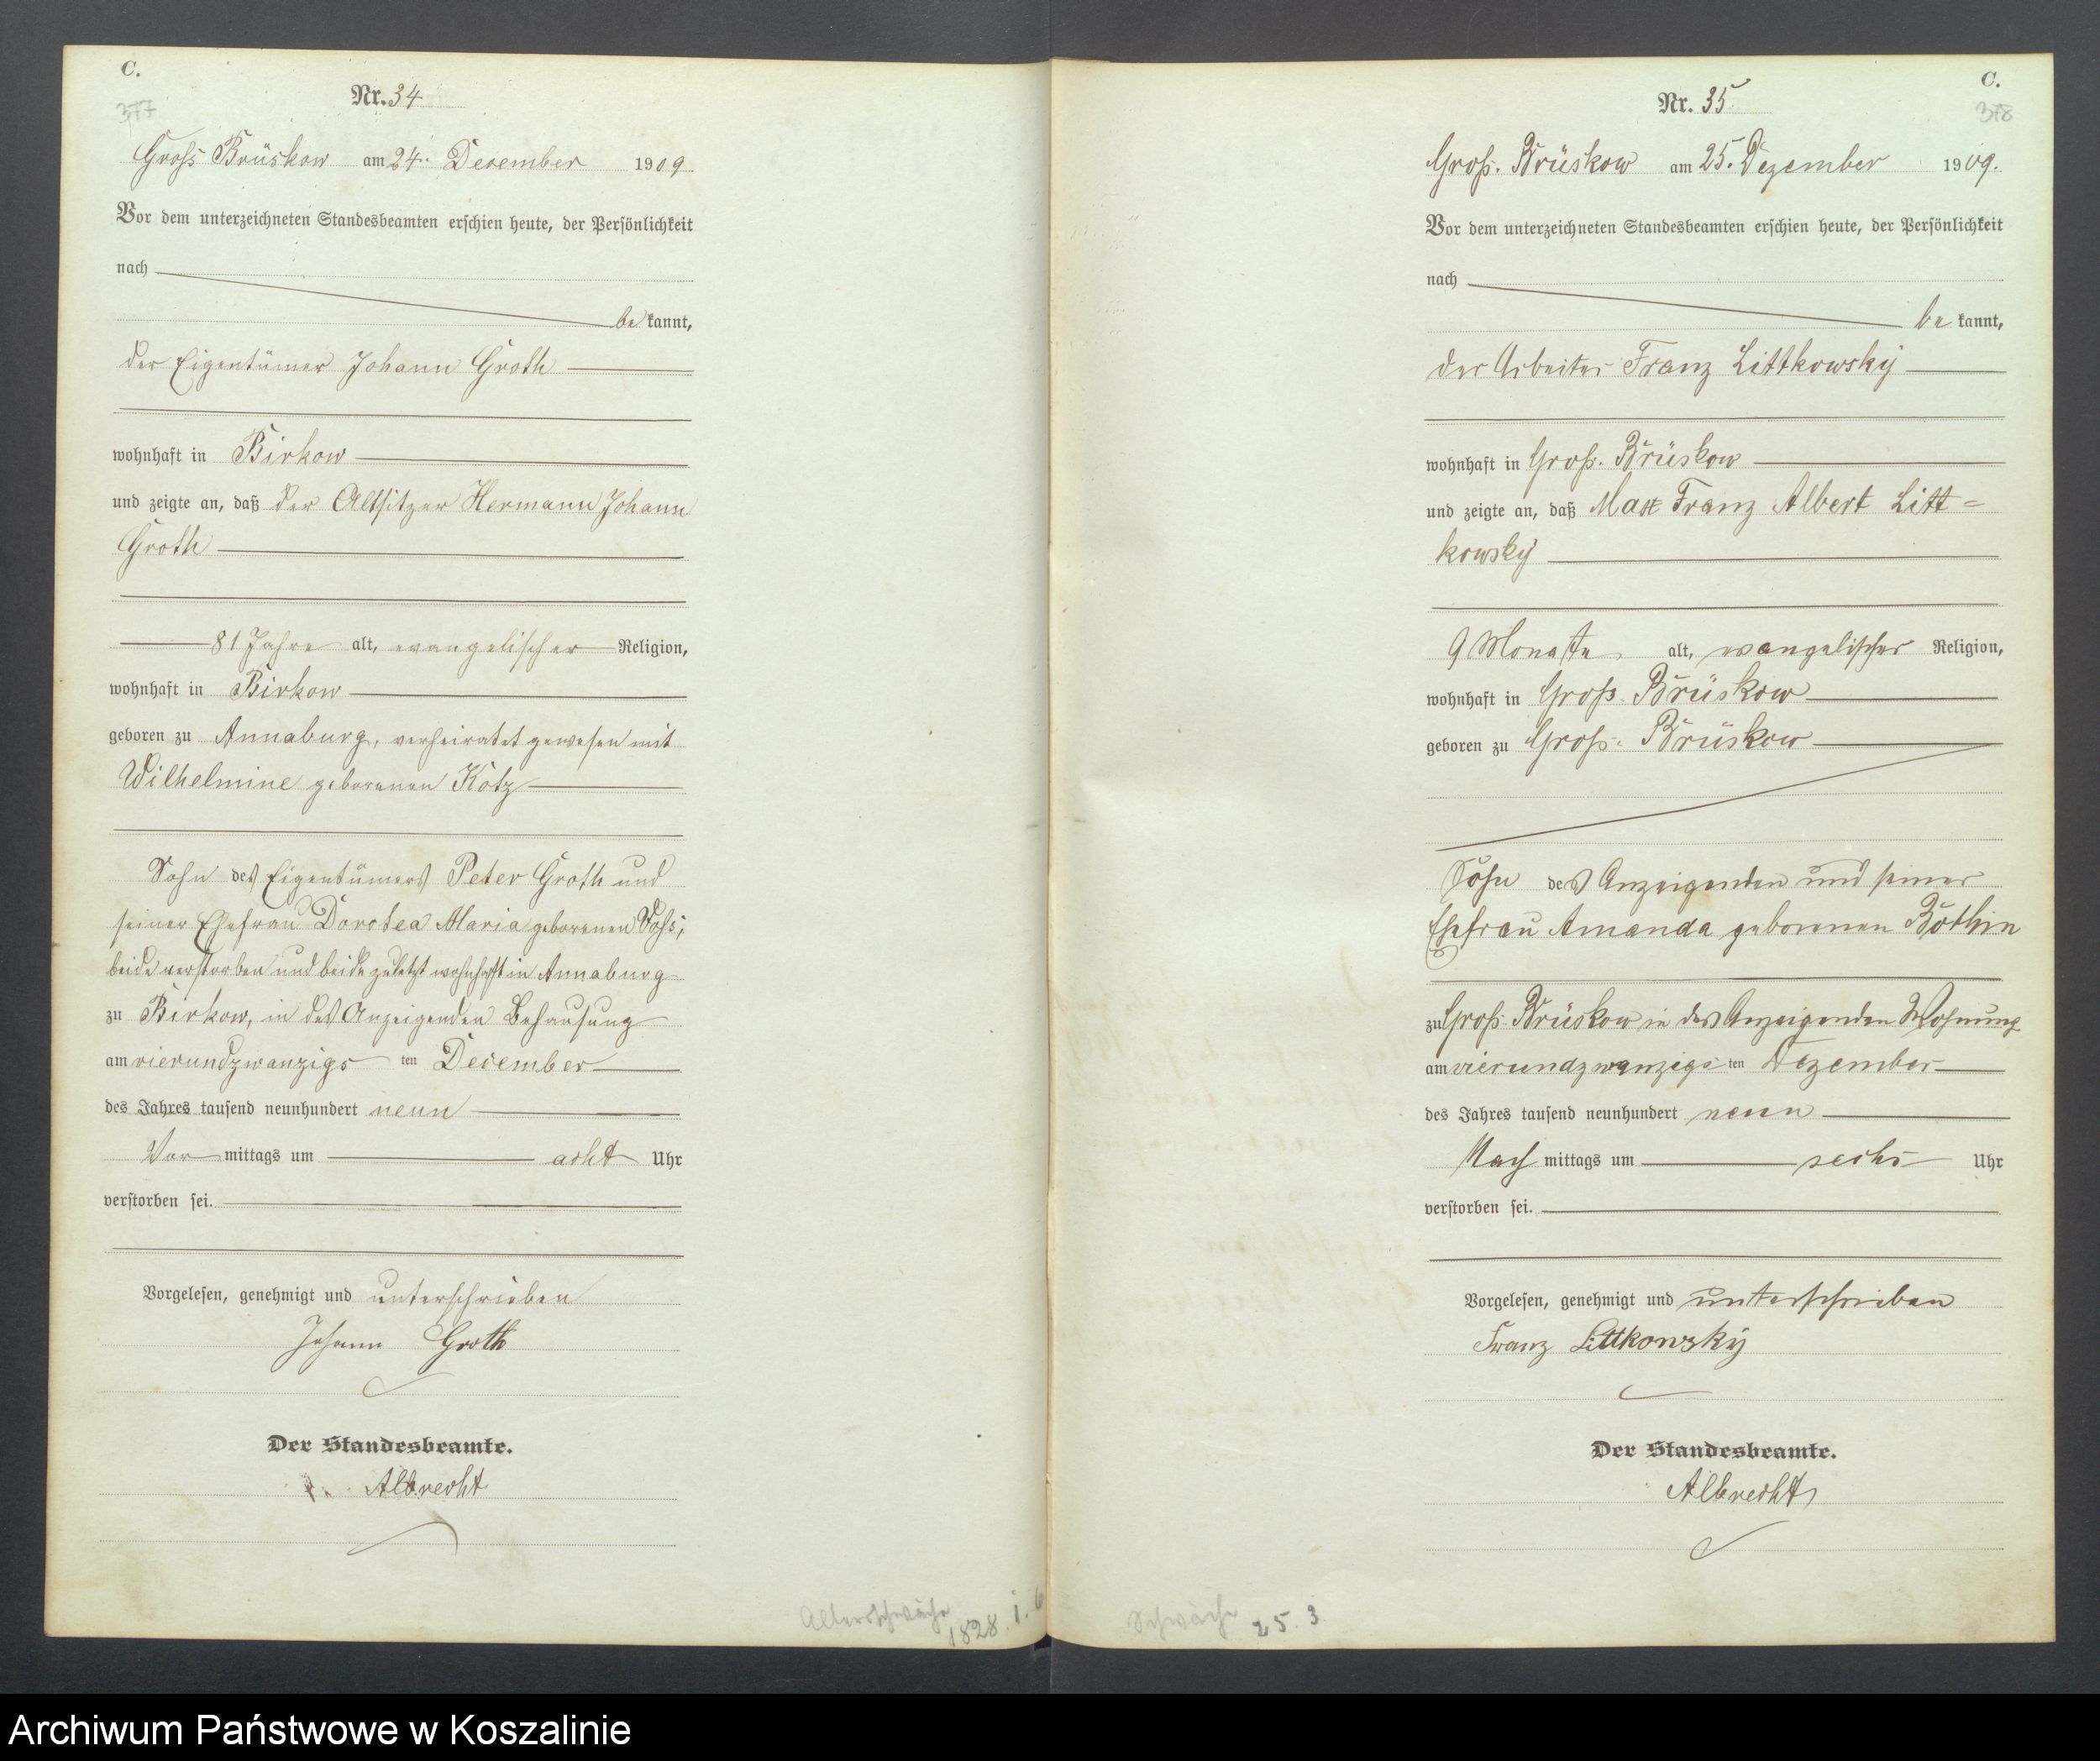 C.
377
Nr. 34
Gross Brüskow am 24. December 1909
Vor dem unterzeichneten Standesbeamten erschien heute, der Persönlichkeit
nach
be kannt,
der Eigentümer Johann Groth
wohnhaft in Birkow
und zeigte an, daß der Altsitzer Hermann Johann
Groth
81 Jahre alt, evangelischer Religion,
wohnhaft in Birkow
geboren zu Annaburg, verheiratet gewesen mit
Wilhelmine geborenen Kotz
Sohn des Eigentümers Peter Groth und
seiner Ehefrau Dorotea Maria geborenen Voss,
beide verstorben und beide zuletzt wohnhaft in Annaburg
zu Birkow, in des Anzeigenden Behausung
am vierundzwanzigs ten December
des Jahres tausend neunhundert neun
Vor mittags um acht Uhr
verstorben sei.
Vorgelesen, genehmigt und unterschrieben
Johann Groth
Der Standesbeamte.
Albrecht
Altersschwäche
1828. 1. 6
C.
378
Nr. 35
Groß. Brüskow am 25. Dezember 1909.
Vor dem unterzeichneten Standesbeamten erschien heute, der Persönlichkeit
nach
be kannt,
der Arbeiter Franz Littkowsky
wohnhaft in Groß. Brüskow
und zeigte an, daß Max Franz Albert Litt=
kowsky
9 Monate alt, evangelischer Religion,
wohnhaft in Groß. Brüskow
geboren zu Groß. Brüskow
Sohn des Anzeigenden und seiner
Ehefrau Amanda geborenen Böthin
zu Groß. Brüskow in des Anzeigenden Wohnung
am vierundzwanzigs ten Dezember
des Jahres tausend neunhundert neun
Nach mittags um sechs Uhr
verstorben sei.
Vorgelesen, genehmigt und unterschrieben
Franz Littkowsky
Der Standesbeamte.
Albrecht
Schwäche 25. 3
Archiwum Państwowe w Koszalinie